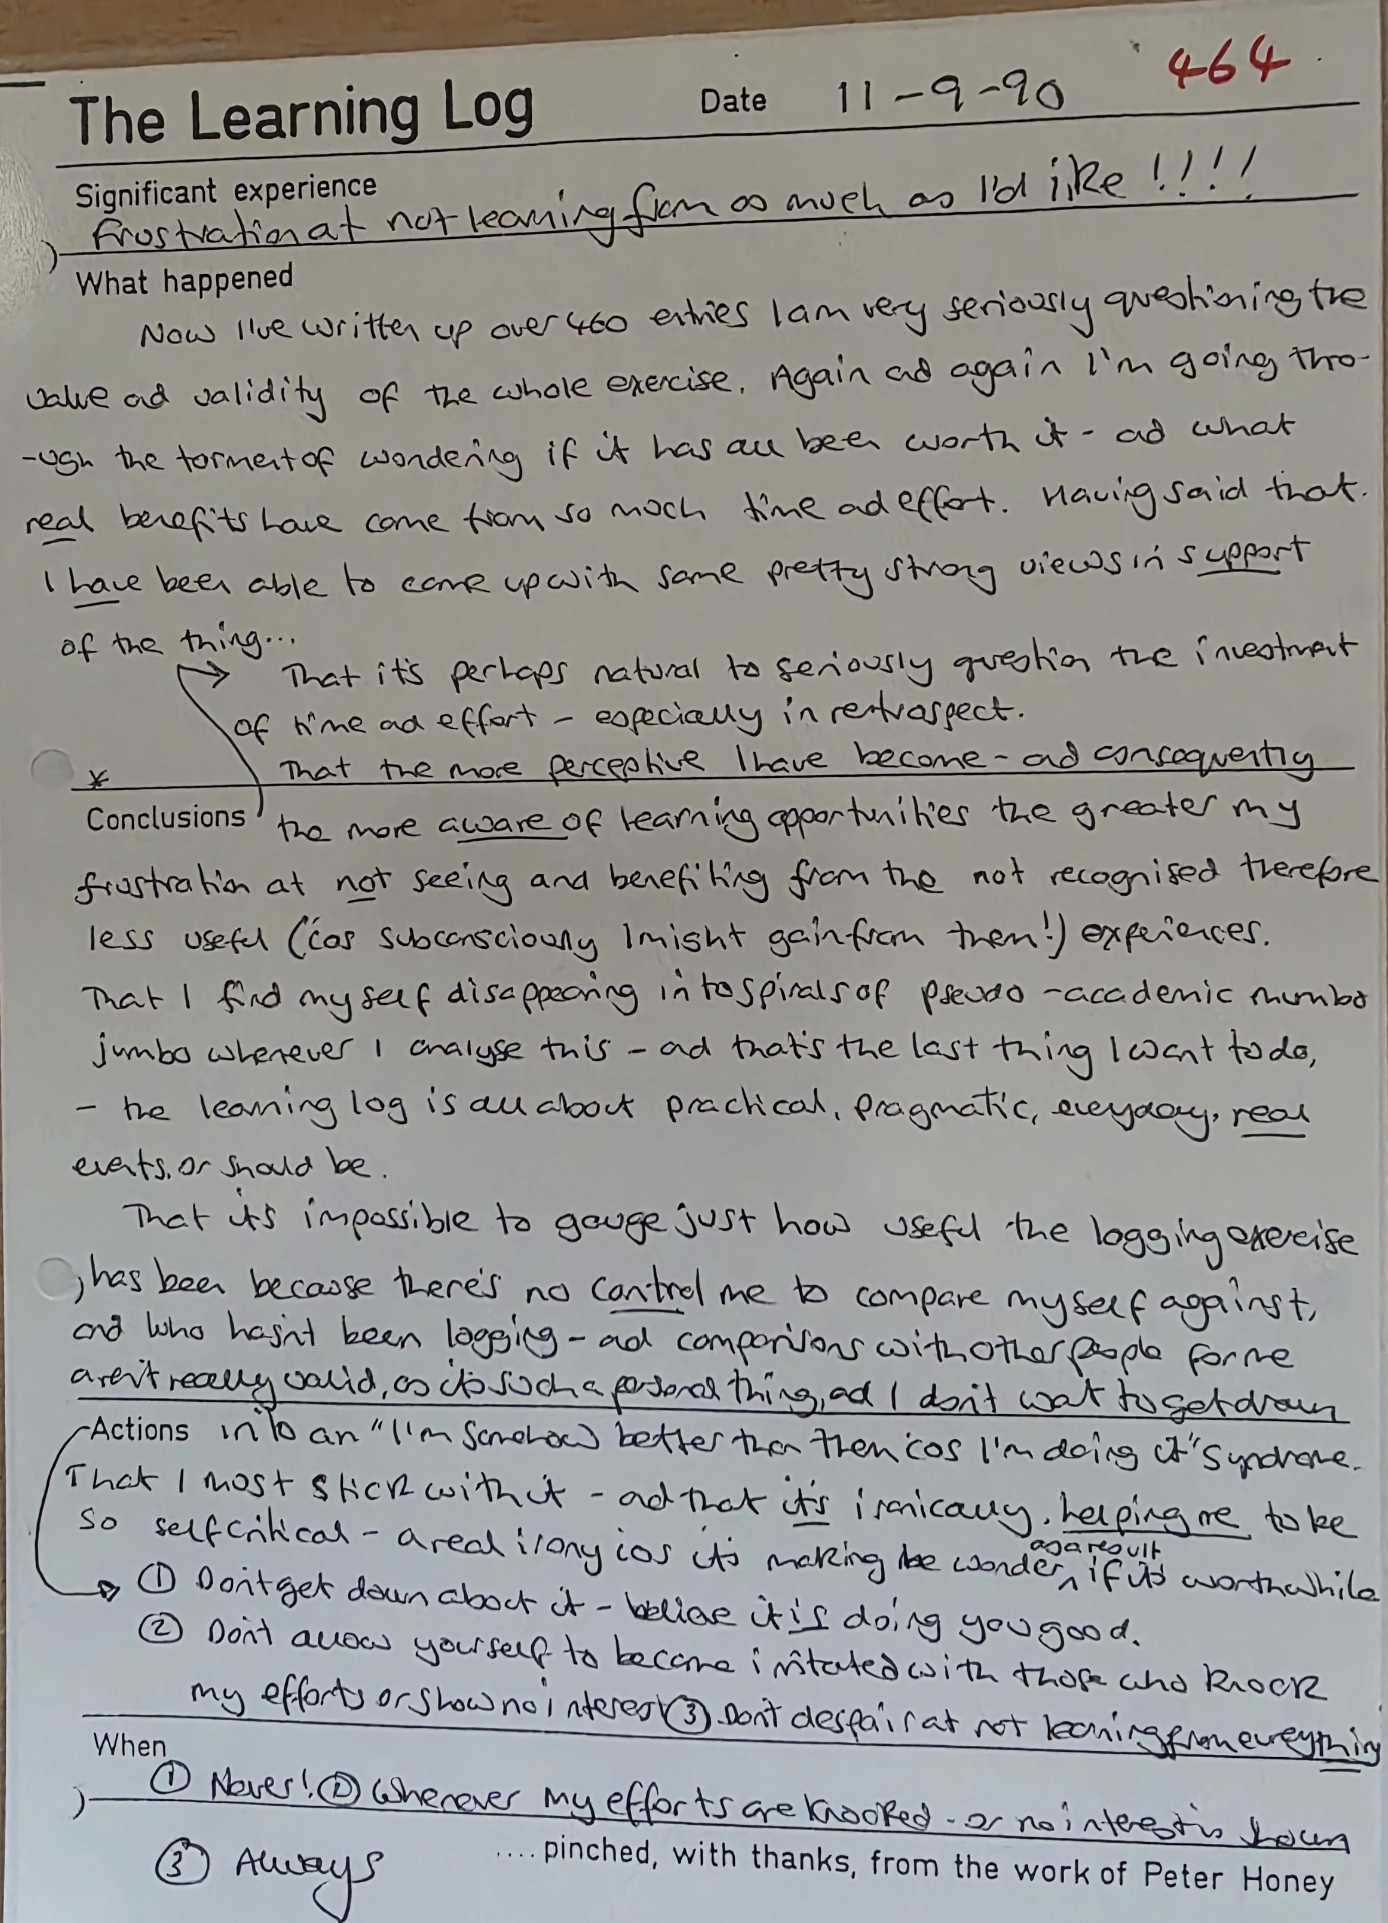 464
The Learning Log Date 11-9-90
Significant experience
Frustration at not learning from as much as I'd like!!!!
What happened
Now I've written up over 460 entries I am very seriously questioning the
value ad validity of the whole exercise. Again ad again I'm going thro-
-ugh the torment of wondering if it has all been worth it - ad what
real benefits have come from so much time ad effort. Having said that.
I have been able to come up with some pretty strong views in support
of the thing...
That it's perhaps natural to seriously question the investment
of time ad effort - especially in retrospect.
* That the more perceptive I have become - ad consequently
Conclusions the more aware of learning opportunities the greater my
frustration at not seeing and benefiting from the not recognised therefore
less useful ('cos subconsciously I might gain from them!) experiences.
That I find myself disappearing into spirals of pseudo-academic mumbo
jumbo whenever I analyse this - ad that's the last thing I want to do,
- the learning log is all about practical, pragmatic, everyday, real
events, or should be.
That it's impossible to gauge just how useful the logging exercise
has been because there's no control me to compare myself against,
and who hasn't been logging - ad comparisons with other people for me
aren't really valid, as its such a personal thing, ad I don't want to get drawn
Actions into an "I'm somehow better than them 'cos I'm doing it" syndrome.
That I must stick with it - ad that it's ironically, helping me to be
so self critical - a real irony cos its making me wonder as a result if its worthwhile
① Don't get down about it - believe it is doing you good.
② Don't allow yourself to become irritated with those who knock
my efforts or show no interest ③ Don't despair at not learning from everything
When
① Never! ② Whenever my efforts are knocked - or no interest is shown
③ Always
.... pinched, with thanks, from the work of Peter Honey